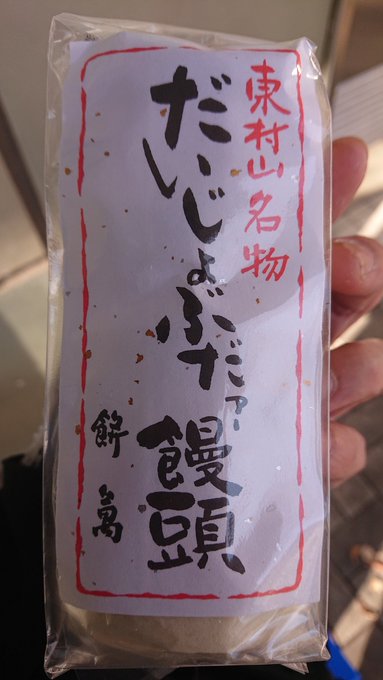 東村山名物
だいじょぶだァー
饅頭
餅萬